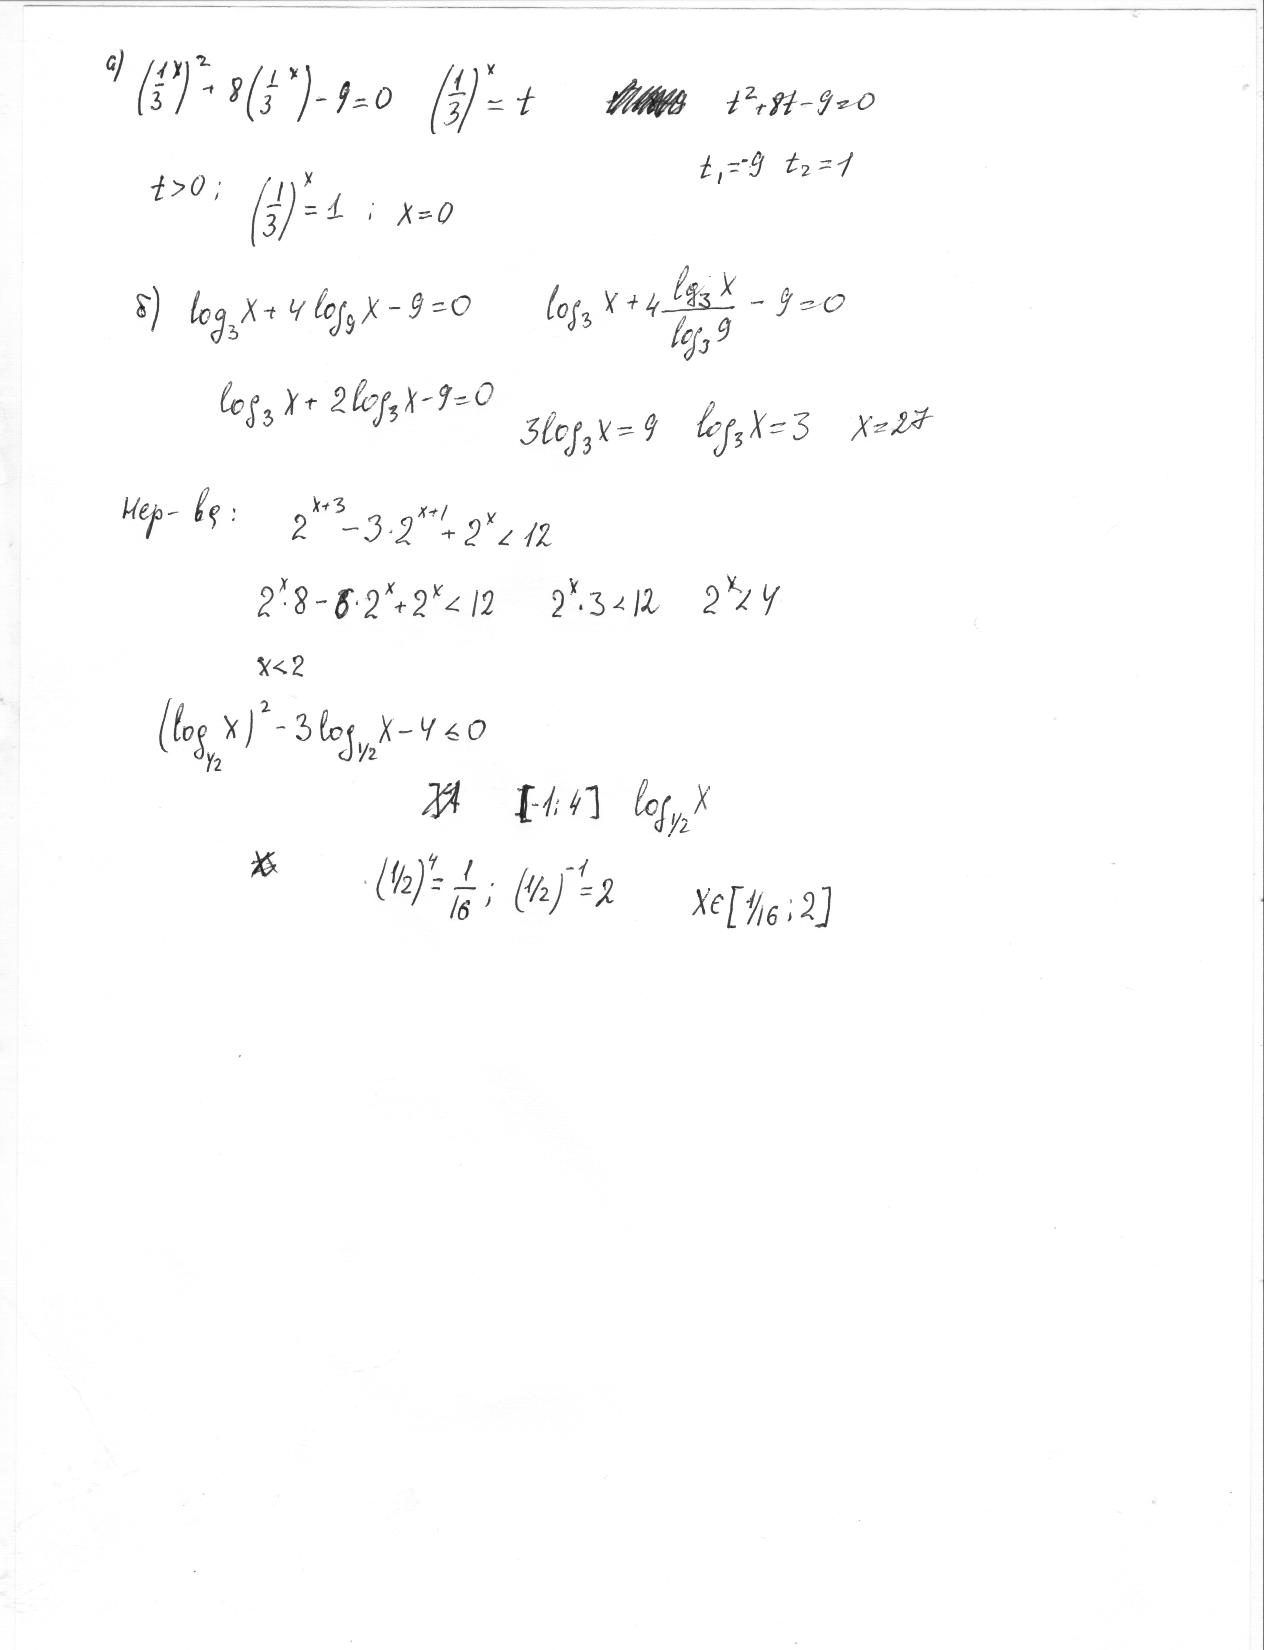 а) (1/3^x)^2 + 8(1/3^x) - 9 = 0 (1/3)^x = t t^2 + 8t - 9 = 0
t_1 = -9 t_2 = 1
t > 0; (1/3)^x = 1 ; x = 0
б) log_3 x + 4 log_9 x - 9 = 0 log_3 x + 4 log_3 x / log_3 9 - 9 = 0
log_3 x + 2 log_3 x - 9 = 0
3 log_3 x = 9 log_3 x = 3 x = 27
Нер-ва: 2^{x+3} - 3·2^{x+1} + 2^x < 12
2^x·8 - 6·2^x + 2^x < 12 2^x·3 < 12 2^x < 4
x < 2
(log_{1/2} x)^2 - 3 log_{1/2} x - 4 ≤ 0
[-1; 4] log_{1/2} x
(1/2)^4 = 1/16 ; (1/2)^{-1} = 2 x ∈ [1/16 ; 2]